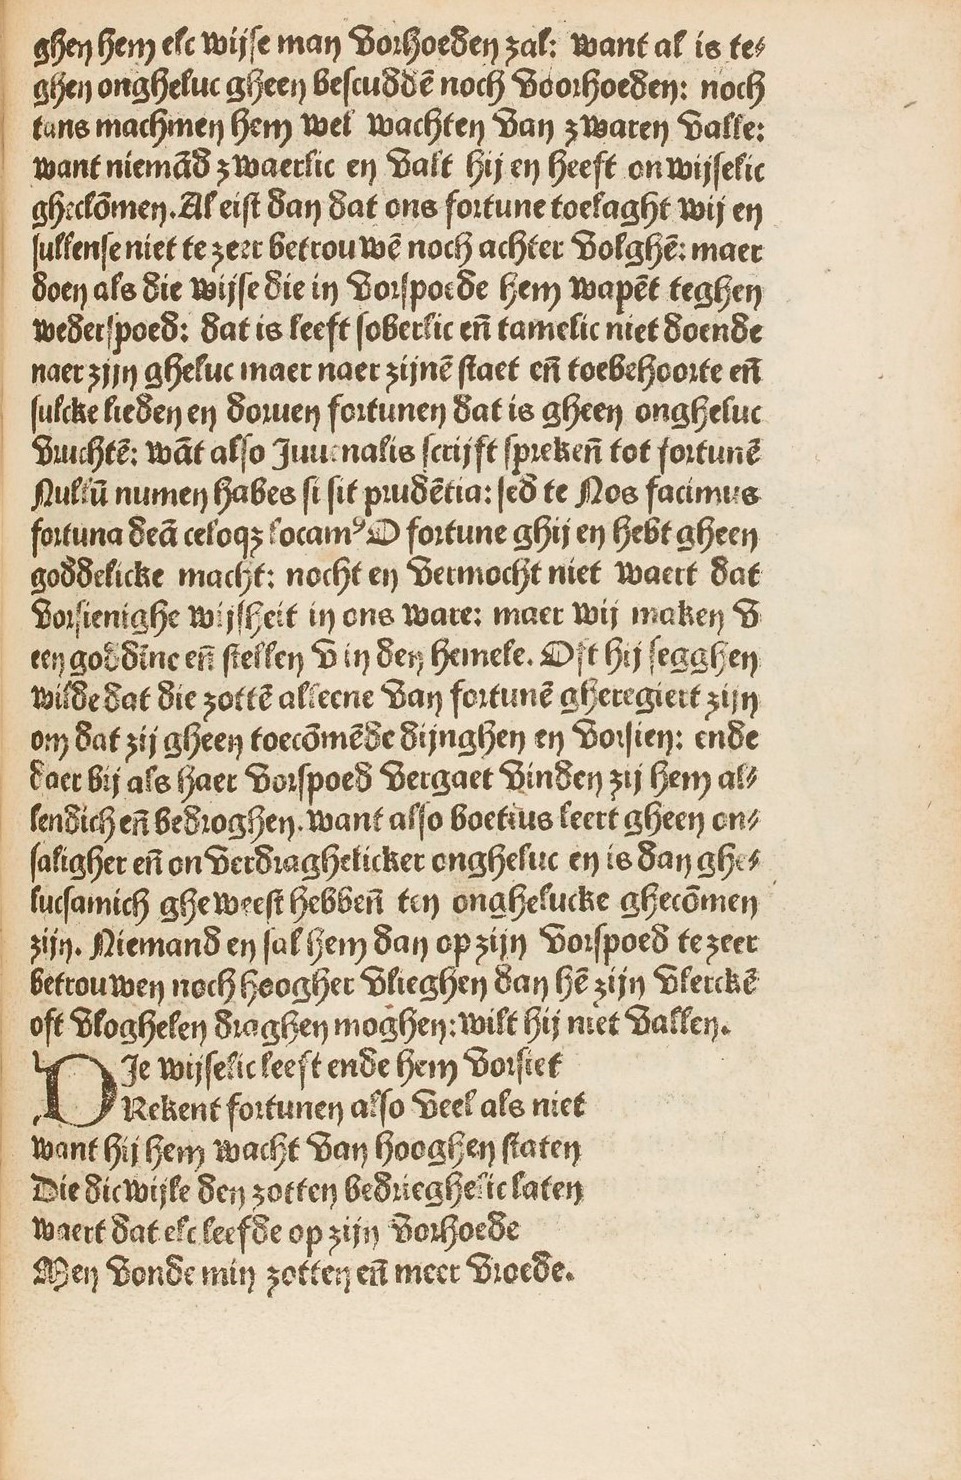 ghen hem elc wijse man vorhoeden zal: want al is te⸗
ghen ongheluc gheen bescuddē noch voorhoeden: noch
tans machmen hem wel wachten van zwaren valle:
want niemād zwaerlic en valt hij en heeft onwijselic
gheclōmen. Al eist dan dat ons fortune toelaght wij en
sullense niet te zeer betrouwē noch achter volghē: maer
doen als die wijse die in vorspoede hem wapēt teghen
wederspoed: dat is leeft soberlic eñ tamelic niet doende
naer zijn gheluc maer naer zijnē staet eñ toebehoorte eñ
sulcke lieden en doruen fortunen dat is gheen ongheluc
vruchtē: wāt also Juuenalis scrijft sprekeñ tot fortunē
Nullū numen habes si sit prudētia: sed te Nos facimus
fortuna deā celoqꝫ locamꝰ O fortune ghij en hebt gheen
goddelicke macht: nocht en vermocht niet waert dat
vorsienighe wijsheit in ons ware: maer wij maken v
een goddīne eñ stellen v in den hemele. Oft hij segghen
wilde dat die zottē alleene van fortunē gheregiert zijn
om dat zij gheen toecōmēde dijnghen en vorsien: ende
daer bij als haer vorspoed vergaet vinden zij hem al⸗
lendich eñ bedroghen. want also boetius leert gheen on⸗
saligher eñ onverdraghelicker ongheluc en is dan ghe⸗
lucsamich gheweest hebbeñ ten onghelucke ghecōmen
zijn. Niemand en sal hem dan op zijn vorspoed te zeer
betrouwen noch hoogher vlieghen dan hē zijn vlerckē
oft vloghelen draghen moghen: wilt hij niet vallen.
DIe wijselic leeft ende hem vorsiet
Rekent fortunen also veel als niet
want hij hem wacht van hooghen staten
Die dicwijle den zotten bedrieghelic laten
waert dat elc leefde op zijn vorhoede
Men vonde min zotten eñ meer vroede.